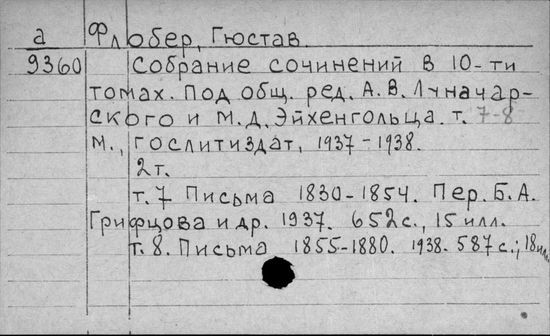 а Флобер, Гюстав.
9360 Собрание сочинений в 10-ти
томах. Под общ. ред. А.В. Луначар-
ского и М.Д. Эйхенгольца. т. 7-8
М., Гослитиздат, 1937-1938.
2т.
т.7 Письма 1830-1854. Пер. Б.А.
Грифцова и др. 1937. 652с., 15 илл.
т. 8. Письма 1855-1880. 1938. 587с.; 18илл.